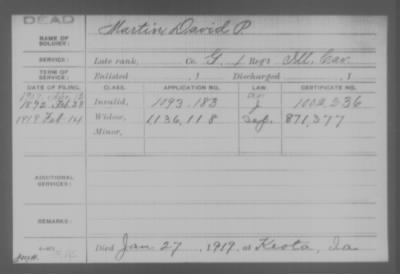 DEAD
NAME OF SOLDIER: Martin David P.
SERVICE: Late rank, Co. G. 1 Reg't Ill. Cav.
TERM OF SERVICE: Enlisted , 1 Discharged , 1
DATE OF FILING. CLASS. APPLICATION NO. LAW. CERTIFICATE NO.
1892 Feb 23 Invalid, 1093.183 J 1002,236
1919 Feb 14 Widow, 1136.118 871,377
Minor,
ADDITIONAL SERVICES:
REMARKS:
Died Jan 27, 1919, at Keota, Ia